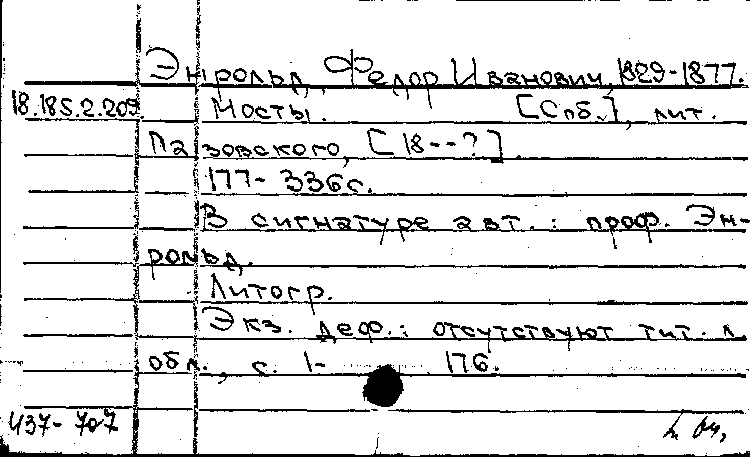 Энрольд, Федор Иванович, 1829-1877.
18.185.2.209. Мосты. [Спб.], лит.
Пазовского, [18--?].
177-336 с.
В сигнатуре авт.: проф. Эн-
рольд.
Литогр.
Экз. деф.: отсутствуют тит. л.
обл., с. 1- 176.
437-707